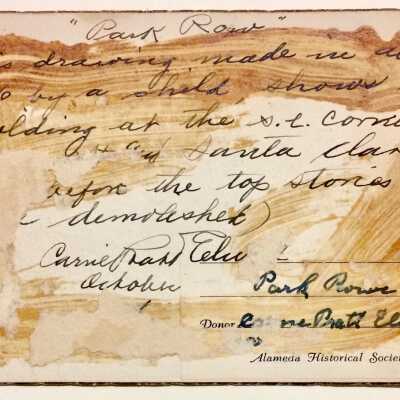 "Park Row"
s drawing made in a
by a child shows
lding at the s.e. corne
+ Santa Clar
before the top stories
demolished)
Carrie Pratt Elw
October
Park Rowe
Donor Pratt El
Alameda Historical Societ